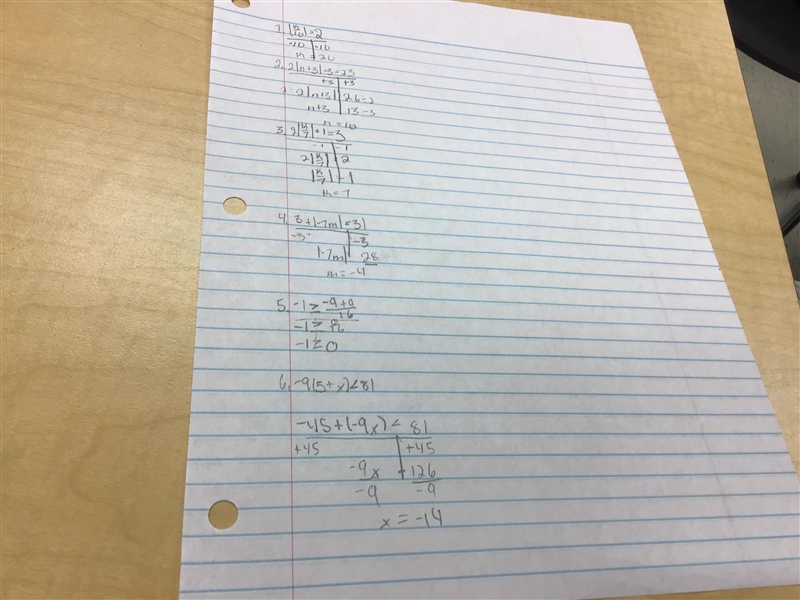 1. |n/10|=2
-10 | -10
n = 20
2. 2|n+3|-3=23
+3 | +3
2|n+3| 26÷2
n+3 13-3
n=10
3. 2|n/7|+1=3
-1 -1
2|n/7| 2
|n/7| 1
n=7
4. 3+|-7m|=31
-3 -3
|-7m| 28
m=-4
5. -1≥ -9+9/16
-1≥
-1≥0
6. -9(5+x)<81
-45+(-9x)< 81
+45 +45
-9x 126
-9 -9
x = -14